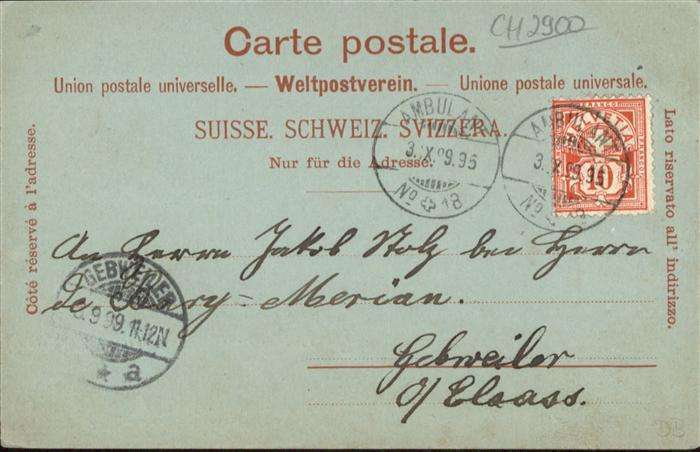 CH 2900
Carte postale.
Union postale universelle. — Weltpostverein. — Unione postale universale.
SUISSE. SCHWEIZ. SVIZZERA.
Nur für die Adresse.
Côté réservé à l'adresse.
Lato riservato all' indirizzo.
FRANCO
HELVETIA
10
AMBULANT
3.X.99.96
No 18
AMBULANT
3.X.99.96
No
An Herrn Jakob Stolz bei Herrn
de Bary-Merian.
Gebweiler
o/ Elsass.
GEBWEILER
9.99.11-12N
* a
DB